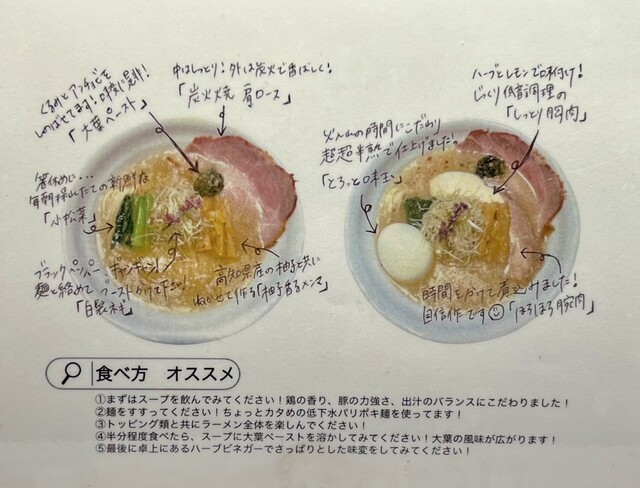 くるみとアンチョビを
しのばせてます!味変に是非!
「大葉ペースト」
中はしっとり!外は炭火で香ばしく!
「炭火焼 肩ロース」
箸休めに...
毎朝採れたての新鮮な
「小松菜」
ブラックペッパーギャンギャン!
麺と絡めてブーストかけて下さい!
「自製ネギ」
高知県産の柚子と共に
ねかせて作る「柚子香るメンマ」
ハーブとレモンで味付け!
じっくり低音調理の
「しっとり胸肉」
火入れの時間にこだわり
超超半熟で仕上げました。
「とろっと味玉」
時間をかけて煮込みました!
自信作です「ほろほろ豚肉」
食べ方 オススメ
①まずはスープを飲んでみてください!鶏の香り、豚の力強さ、出汁のバランスにこだわりました!
②麺をすすってください!ちょっとカタめの低下水パリポキ麺を使ってます!
③トッピング類と共にラーメン全体を楽しんでください!
④半分程度食べたら、スープに大葉ペーストを溶かしてみてください!大葉の風味が広がります!
⑤最後に卓上にあるハーブビネガーでさっぱりとした味変をしてみてください!